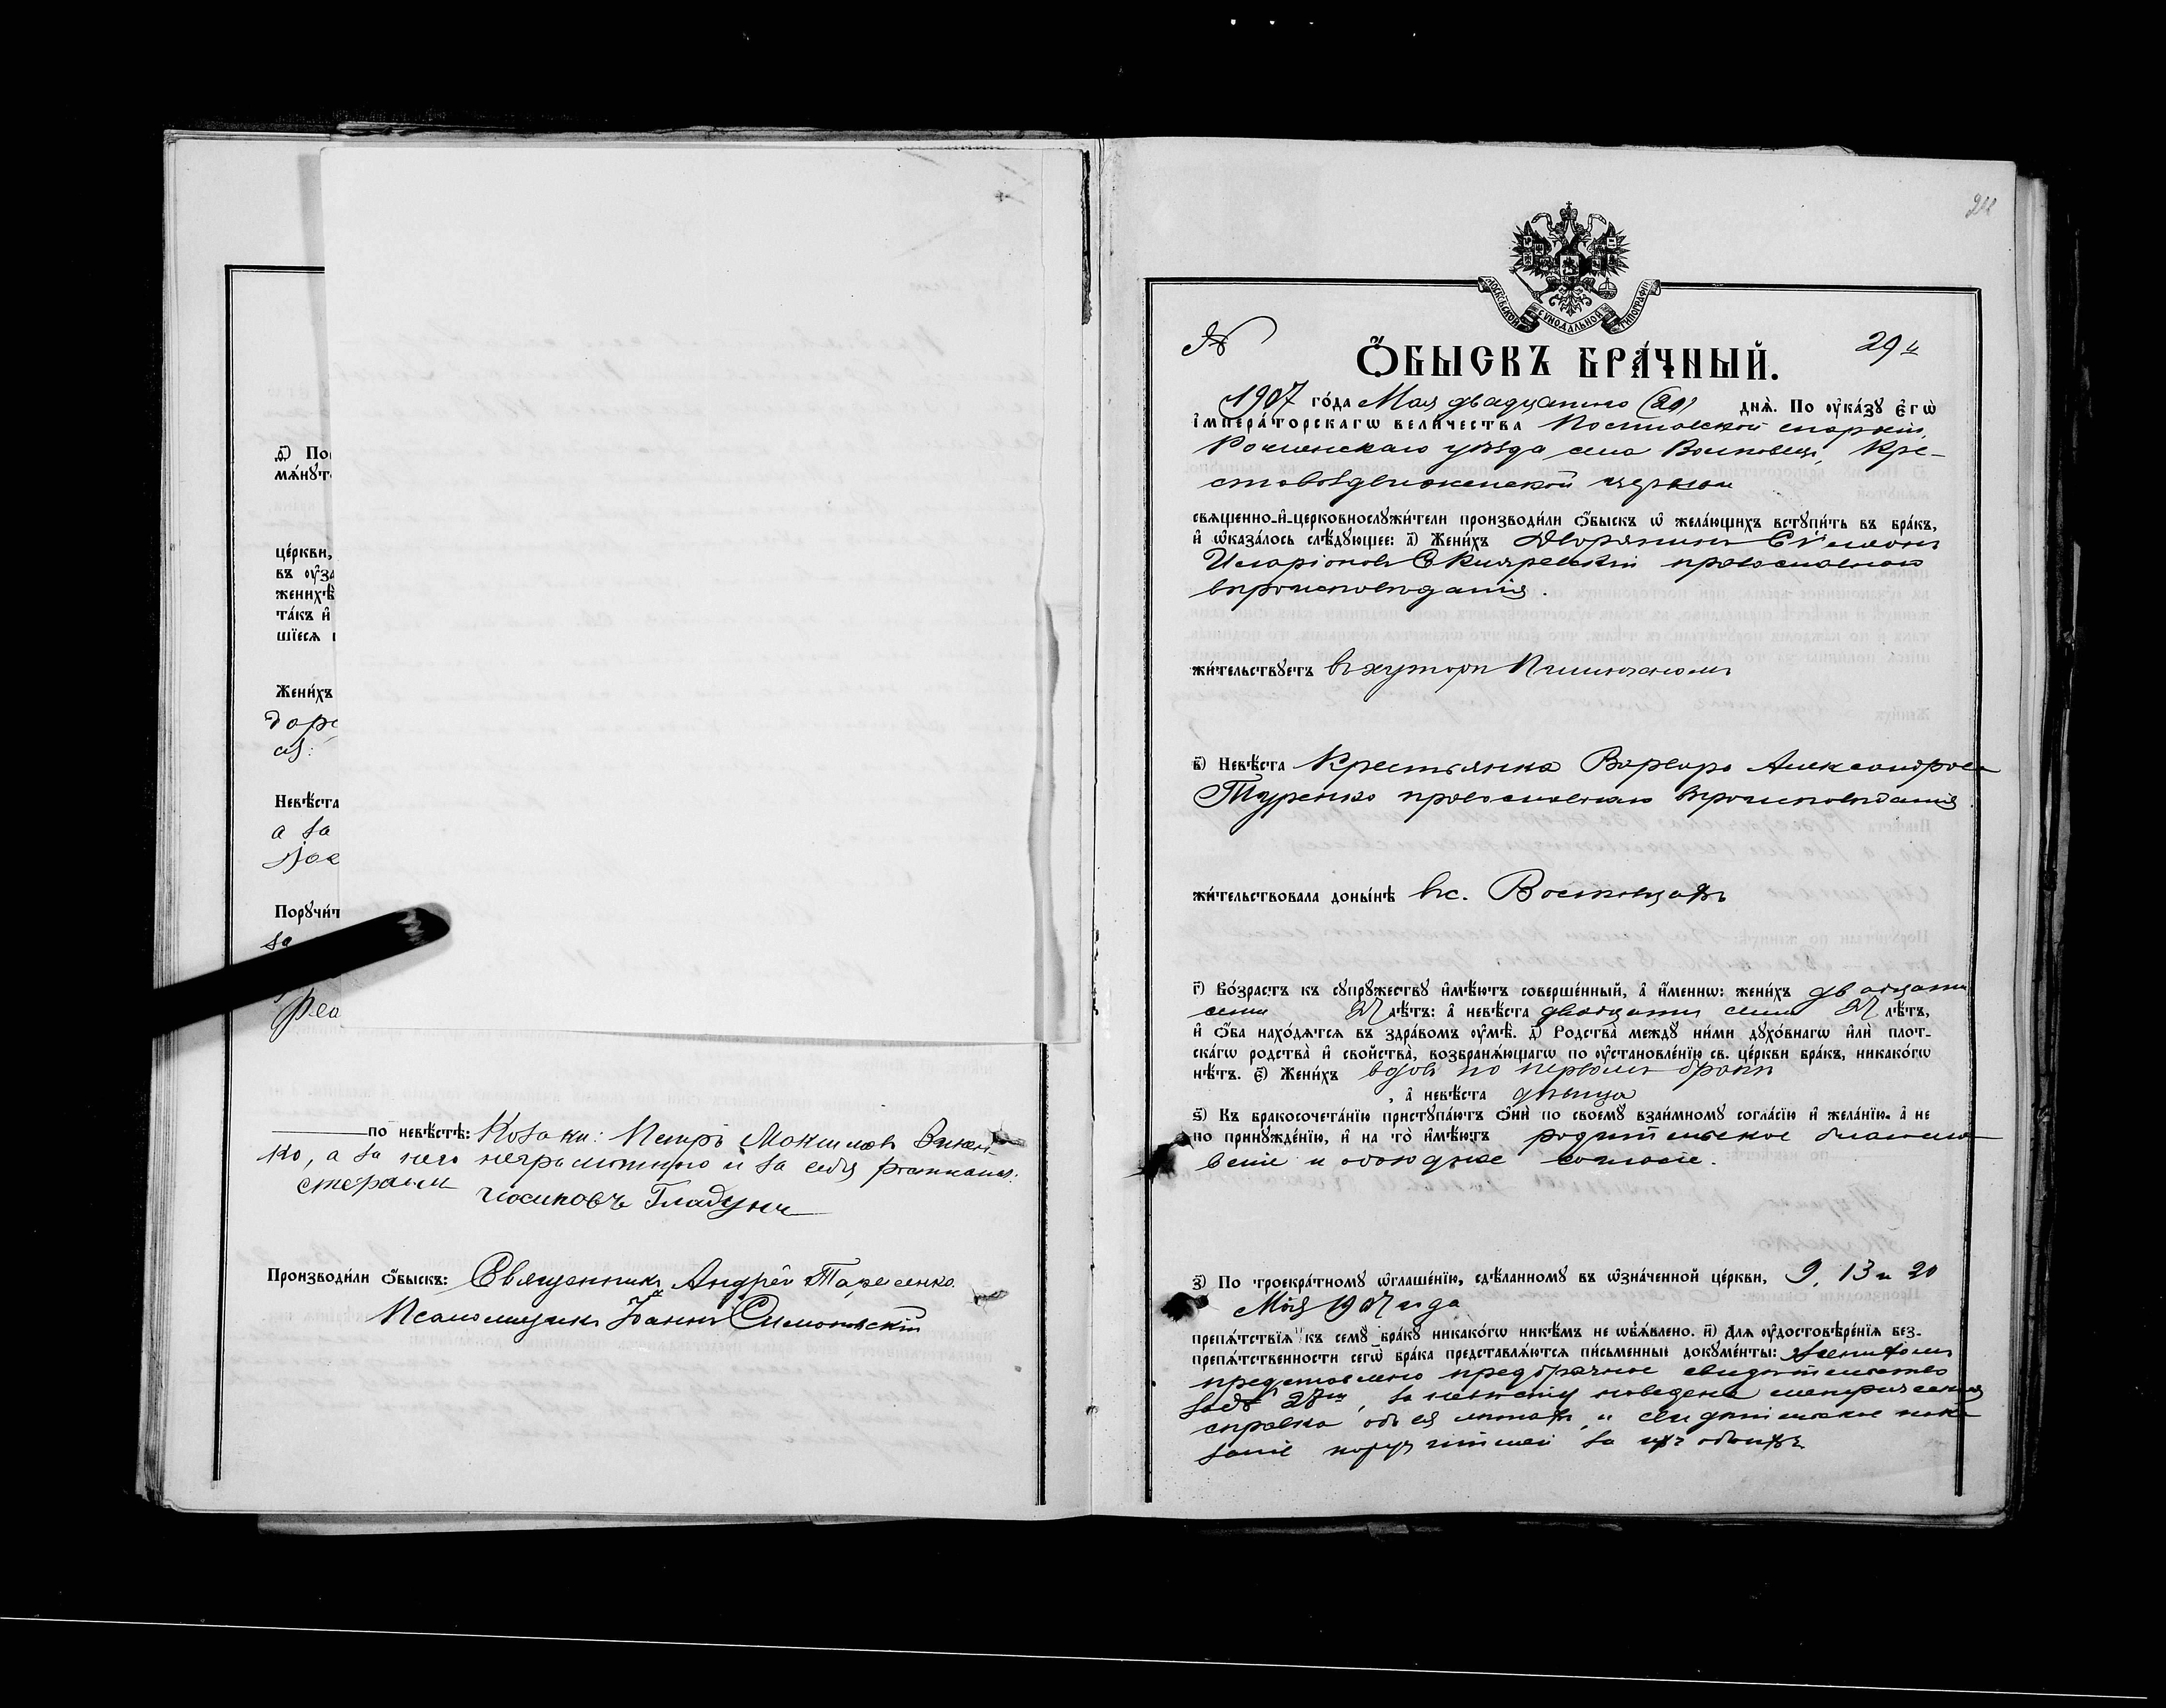 а҃) По
мѧ́нꙋт
це́ркви,
въ оу҆за
женихѣ
та́къ и҆
шїесѧ
Жени́хъ
доре
ся:
Невѣ́ста
а за
Пор꙳учи́т
за
по невѣ́стѣ: Козаки: Петръ Максимовъ
ко, а за него неграмотного и за себя росписался:
Иосиповъ Гладунъ
Производи́ли ѻ҆́быскъ: Священникъ Андрей Тарасенко.
Псаломщикъ Іоаннъ Симоновскій
МОСКОВСКОЙ СѴНОДАЛЬНОЙ ТИПОГРАФІИ
№
29 й
Ѻ҆́БЫСКЪ БРА́ЧНЫЙ.
1907 го́да Мая двадцатого (20) днѧ̀. По оу҆ка́зꙋ Є҆гѡ̀
І҆мпера́торскагѡ вели́чества Полтавской епархіи,
Роменскаго уѣзда села Волковецъ, Кре-
стовоздвиженской церкви
свѧщенно-и҆-церковнослꙋжи́тели производи́ли ѻ҆́быскъ ѡ҆ жела́ющихъ встꙋпи́ть въ бра́къ,
и҆ ѡ҆каза́лось слѣ́дꙋющее: а҃) Жени́хъ Дворянинъ Симеонъ
Иларіоновъ православнаго
вѣроисповѣданія.
жи́тельствꙋетъ въ хуторѣ
в҃) Невѣ́ста Крестьянка Варвара Александрова
Туренко православнаго вѣроисповѣданія
жи́тельствовала доны́нѣ въ с. Волковцахъ
г҃) Во́зрастъ къ сꙋпрꙋ́жествꙋ и҆мѣ́ютъ соверше́нный, а҆ и҆́меннѡ: жени́хъ двадцати
семи 27 лѣ́тъ: а҆ невѣ́ста двадцати семи 27 лѣ́тъ,
и҆ ѻ҆́ба нахо́дѧтсѧ въ здра́вомъ оу҆мѣ̀. д҃) Родства̀ междꙋ ни́ми дꙋхо́внагѡ и҆лѝ плот-
ска́гѡ родства̀ и҆ сво́йства̀, возбранѧ́ющагѡ по оу҆становле́нїю св. це́ркви бра́къ, никако́гѡ
нѣ́тъ. є҃) Жени́хъ вдовъ по первомъ бракѣ
, а҆ невѣ́ста дѣвица
ѕ҃) Къ бракосочета́нїю пристꙋпа́ютъ ѻ҆нѝ по своемꙋ̀ взаи́мномꙋ согла́сїю и҆ жела́нїю, а҆ не
по принꙋжде́нїю, и҆ на то̀ и҆мѣ́ютъ родительское благосло-
веніе и обоюдное согласіе.
з҃) По троекра́тномꙋ ѡ҆глаше́нїю, сдѣ́ланномꙋ въ ѡ҆зна́ченной це́ркви, 9, 13 и 20
Мая 1907 года
препѧ́тствїѧ къ семꙋ̀ бра́кꙋ никако́гѡ никѣ́мъ не ѡ҆б̾ѧ́влено. и҃) Длѧ оу҆достовѣре́нїѧ без-
препѧ́тственности сегѡ̀ бра́ка представлѧ́ютсѧ пи́сьменныѧ докꙋме́нты: Женихомъ
представлено предбрачное свидѣтельство
за № 27м, за невѣсту наведена метрическая
справка объ ея лѣтахъ, и свидѣтельское пока-
заніе поручителей за ихъ обоихъ